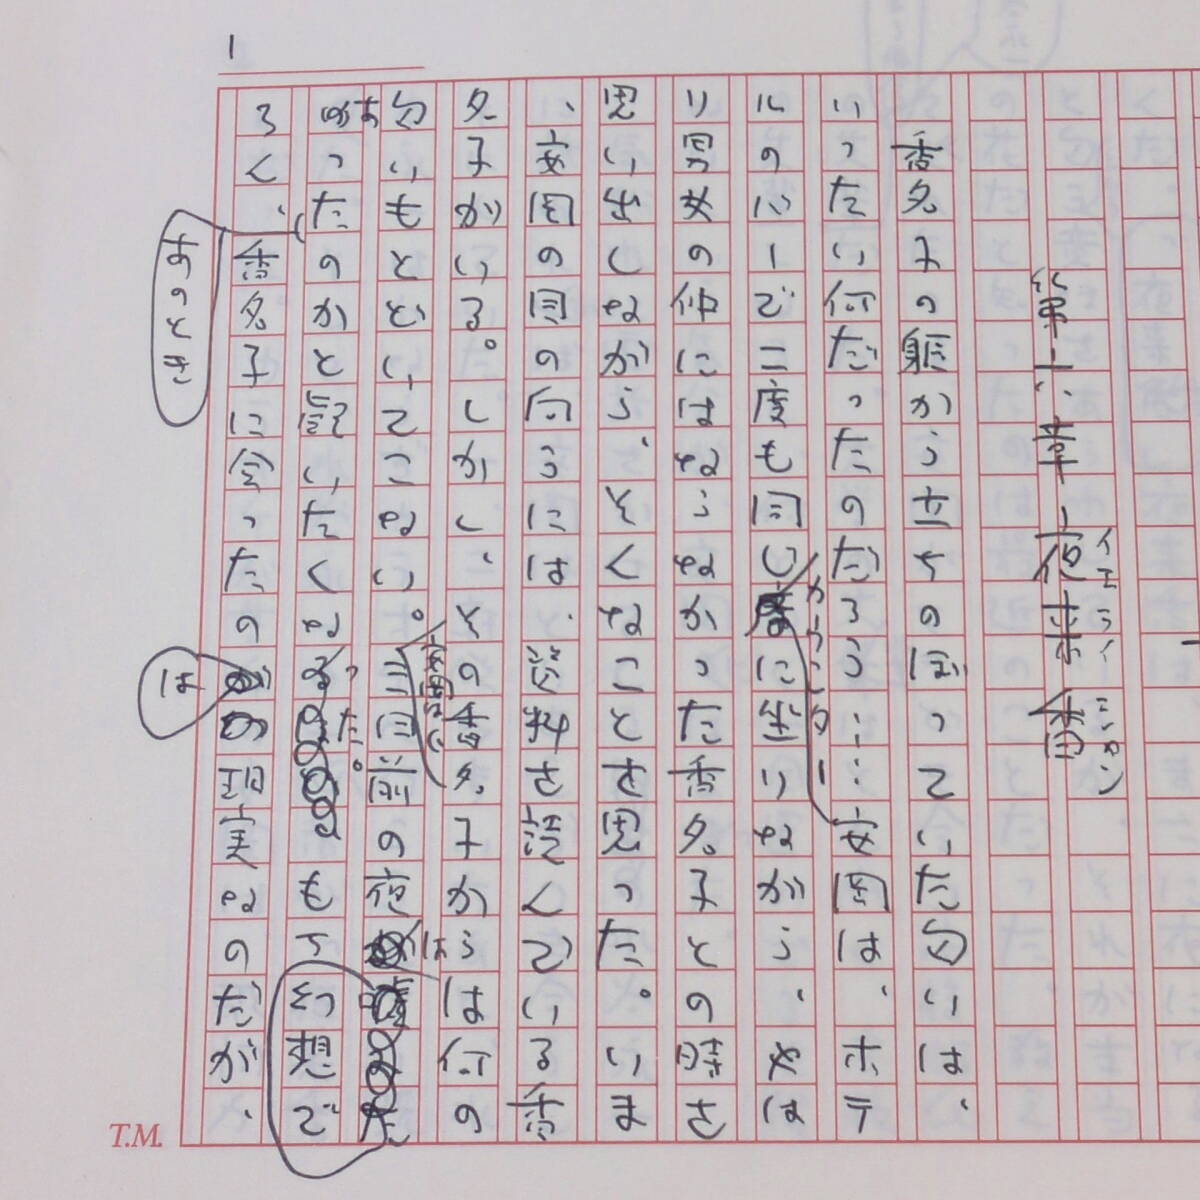 1
第六章―夜来香
イエライシャン
香名子の躯から立ちのぼっていた匂いは、
いったい何だったのだろう……安岡は、ホテ
ルのバーで二度も同じ
カウンター
に坐りながら、やは
り男女の仲にはならなかった香名子との時を
思い出しながら、そんなことを思った。いま
、安岡の目の向うには、資料を読んでいる香
名子がいる。しかし、その香名子からは何の
匂いもとどいてこない。
安岡は、
三日前の夜は
幻想で
あったのかと疑いたくなった。もち
ろん、
あのとき
香名子に会ったの
は
現実なのだが、
T.M.